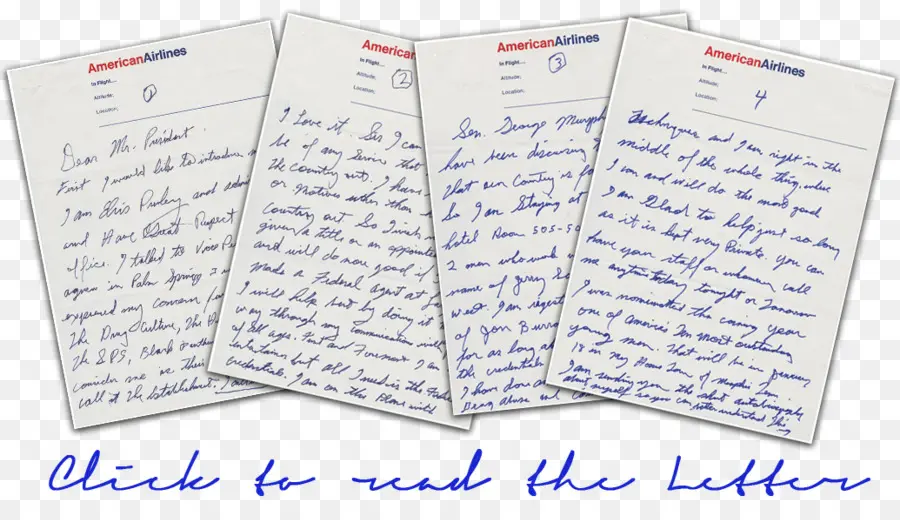 AmericanAirlines
In Flight...
Altitude;
Location;
1
Dear Mr. President.
First I would like to introduce
I am Elvis Presley and admire
and Have Great Respect
office. I talked to Vice Pre
in Palm Springs 3 w
expressed my concern for
The Drug Culture, The
The SDS, Black Panther
consider me as their
call it The Establishment. I call
American
In Flight...
Altitude;
Location;
2
I Love it. Sir I can
be of any Service that
the country out. I have
or motives other than
country out So I wish
given a title or an appointed
and will do more good if
made a Federal agent at Large
I will help but by doing it
way through my communications with
of all ages. First and Foremost I am
entertainer but all I need is the Federal
credentials. I am on this Plane with
AmericanAirlines
In Flight...
Altitude;
Location;
3
Sen. George Murph
have been discussing
that our Country is fa
So I am Staying at
hotel Room 505-50
2 men who work w
name of Jerry S
West. I am regist
of Jon Burro
for as long a
the credentials
I have done
Drug abuse and
AmericanAirlines
In Flight...
Altitude;
Location;
4
Techniques and I am right in the
middle of the whole thing, where
I can and will do the most good
I am Glad to help just so long
as it is kept very Private. You can
have your staff or whomever call
me anytime today tonight or Tomorrow
I was nominated the coming year
one of America's Ten most outstanding
young men. That will be in January
18 in my Home Town of Memphis Tenn.
I am sending you the short autobiography
about myself so you can better understand this
Click to read the Letter